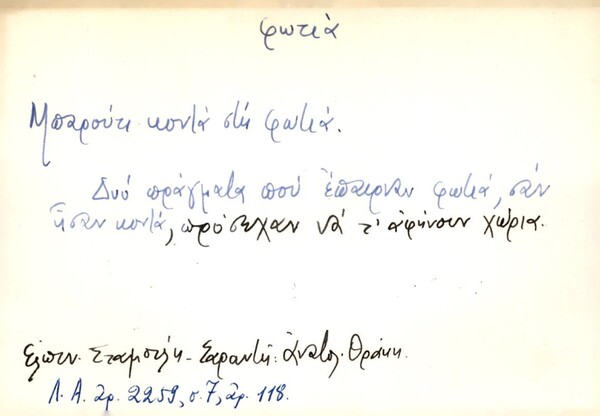 φωτιά
Μπαρούτι κοντά στή φωτιά.
Δυό πράγματα πού ἔπαιρναν φωτιά, σάν
ἦσαν κοντά, πρόσεχαν νά τ' ἀφήνουν χώρια.
Ελπιν. Σταμούλη - Σαραντῆ: Ἀνατολ. Θράκη.
Λ. Α. ἀρ. 2259, σ. 7, ἀρ. 118.